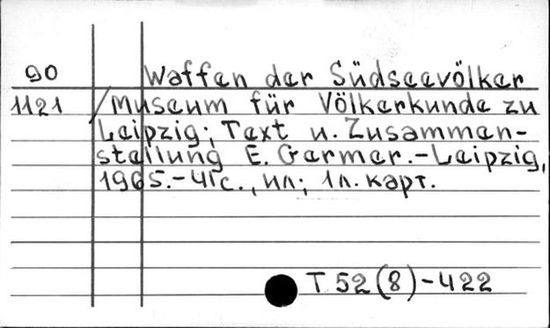 90 Waffen der Südseevölker
1121 /Museum für Völkerkunde zu
Leipzig; Text u. Zusammen-
stellung E. Germer.-Leipzig,
1965.-41с., ил; 1л. карт.
T 52(8)-422